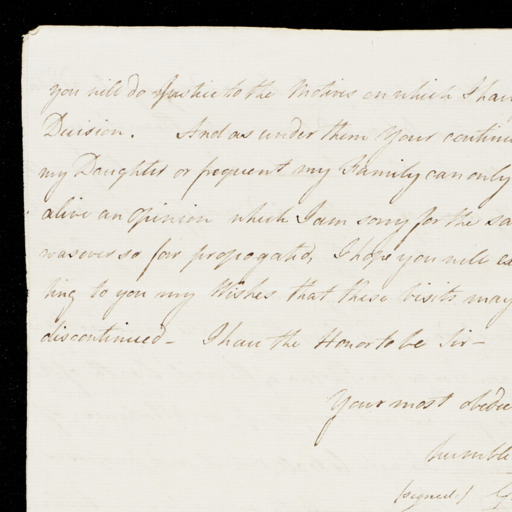 you will do Justice to the Motives on which I hav
Decision. And as under them Your continu
my Daughter or frequent my Family can only
alive an Opinion which I am sorry for the sa
was ever so far propagated, I hope you will ex
ting to you my Wishes that these Visits may
discontinued - I have the Honor to be Sir -
Your most obedie
humble
(signed) G